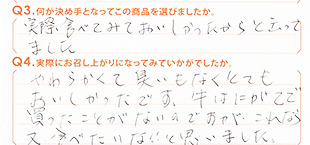 Q3.何が決め手となってこの商品を選びましたか。
実際食べてみておいしかったからと云って
ました
Q4.実際にお召し上がりになってみていかがでしたか。
やわらかくて臭いもなくとても
おいしかったです。牛はにがてで
買ったことがないのですが、これなら
又食べたいな!!と思いました。